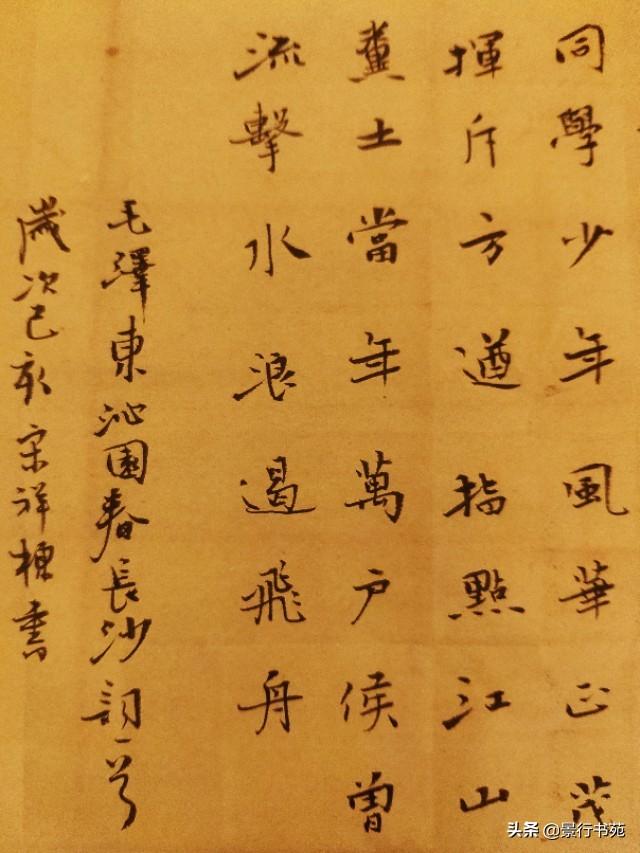 同學少年風華正茂
揮斥方遒指點江山
糞土當年萬户侯曾
流擊水浪遏飛舟
毛澤東沁園春長沙詞一首
歲次己亥宋祥標書
头条 @景行书苑